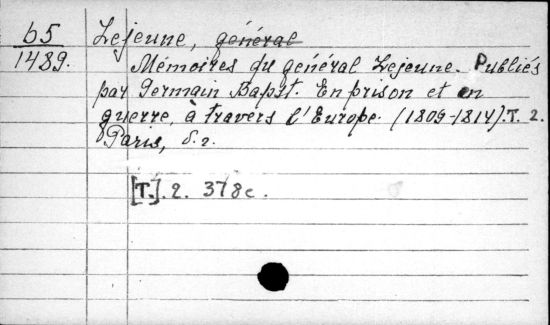 65 Lejeune, général
1489. Mémoires du général Lejeune. Publiés
par Germain Bapst. En prison et en
guerre, à travers l'Europe. (1809-1814). T. 2.
Paris, S. г.
[T.] 2. 378 с.